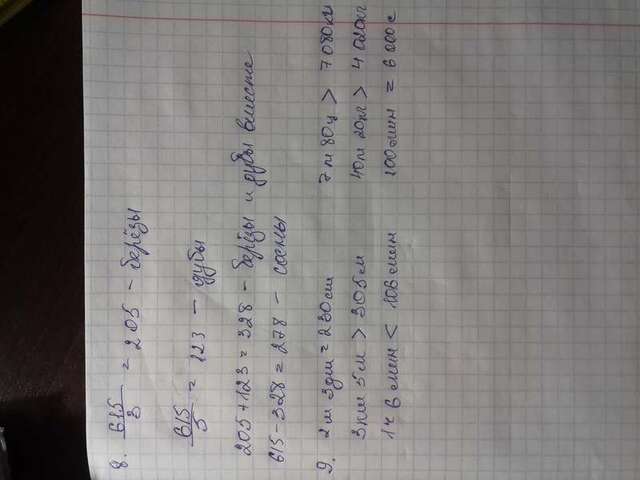 8. 615/3 = 205 - берёзы
615/5 = 123 - дубы
205+123=328 - берёзы и дубы вместе
615-328=278 - сосны
9. 2м 3дм = 230см 7т 80ц > 7080кг
3км 5м > 305м 40т 20кг > 4020кг
1ч 6мин < 106мин 100мин = 6000с